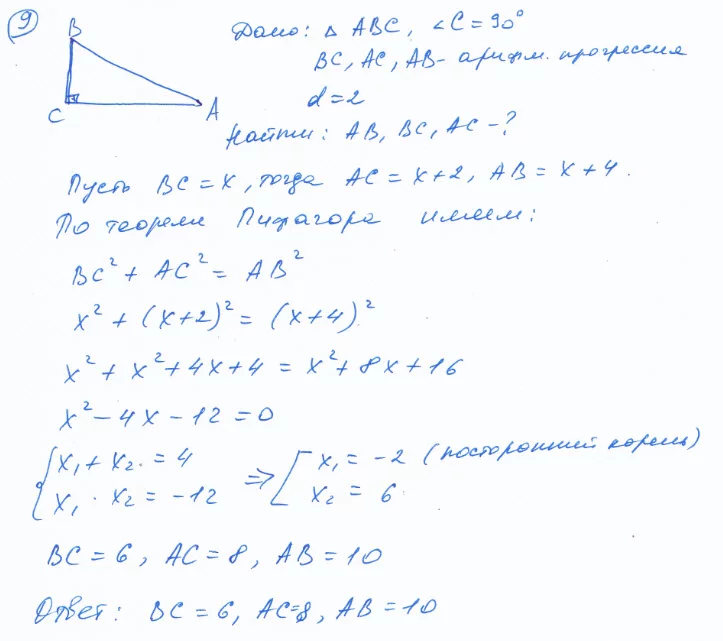 9
B
C
A
Дано: △ ABC, ∠C = 90°
BC, AC, AB - арифм. прогрессия
d = 2
Найти: AB, BC, AC - ?
Пусть BC = x, тогда AC = x+2, AB = x+4.
По теореме Пифагора имеем:
BC² + AC² = AB²
x² + (x+2)² = (x+4)²
x² + x² + 4x + 4 = x² + 8x + 16
x² - 4x - 12 = 0
{ x₁ + x₂ = 4 ⇒ [ x₁ = -2 (посторонний корень)
x₁ · x₂ = -12 x₂ = 6
BC = 6, AC = 8, AB = 10
Ответ: BC = 6, AC = 8, AB = 10